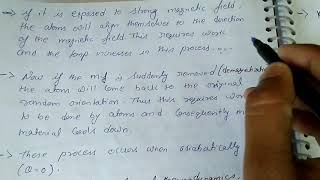 → If it is exposed to strong magnetic field,
the atoms will align themselves to the direction
of the magnetic field. This requires work
and the temp increases in this process....
→ Now if the m.f is suddenly removed (demagnetisa
the atoms will come back to the original
random orientation. Thus this requires work
to be done by atoms and Consequently m
material Cools down.
→ These process occurs when adiabatically
(Q=0).